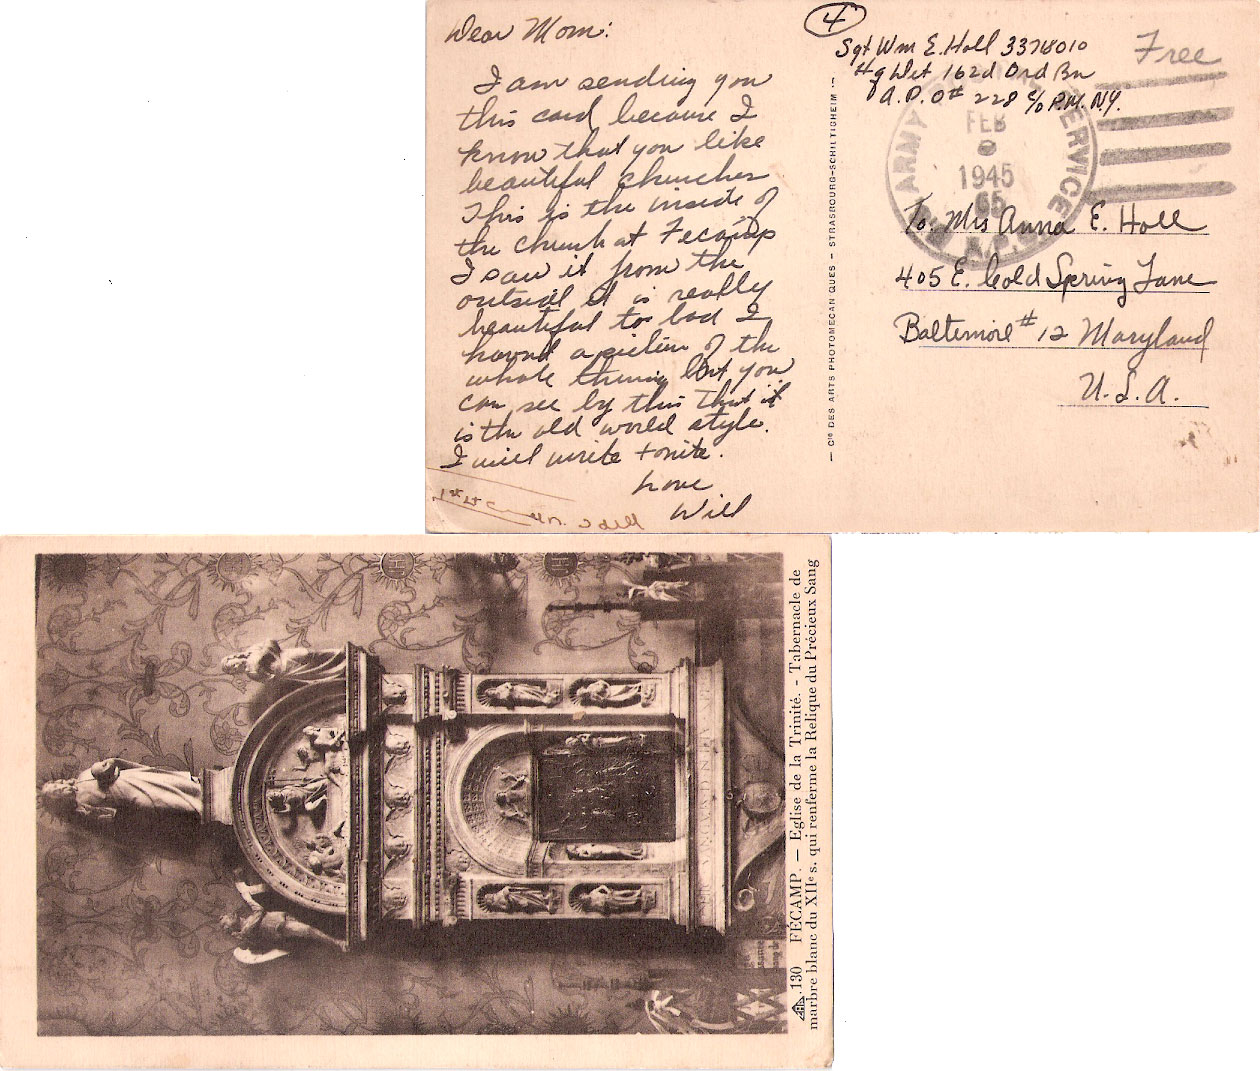 Dear Mom:
I am sending you
this card because I
know that you like
beautiful churches
This is the inside of
the church at Fecamp
I saw it from the
outside it is really
beautiful to bad I
havnt a picture of the
whole thing but you
can see by this that it
is the old world style.
I will write tonite.
Love
Will
— Cie DES ARTS PHOTOMECANIQUES - STRASBOURG-SCHILTIGHEIM —
4
Sgt Wm E. Holl
Hq Det 162d Ord Bn
A.P.O# 228 c/o P.M. N.Y.
Free
ARMY SERVICE
FEB
1945
To. Mrs Anna E. Holl
405 E. Cold Spring Lane
Baltimore #12 Maryland
U.S.A.
130 FÉCAMP. — Eglise de la Trinité. - Tabernacle de
marbre blanc du XIIe s. qui renferme la Relique du Précieux Sang